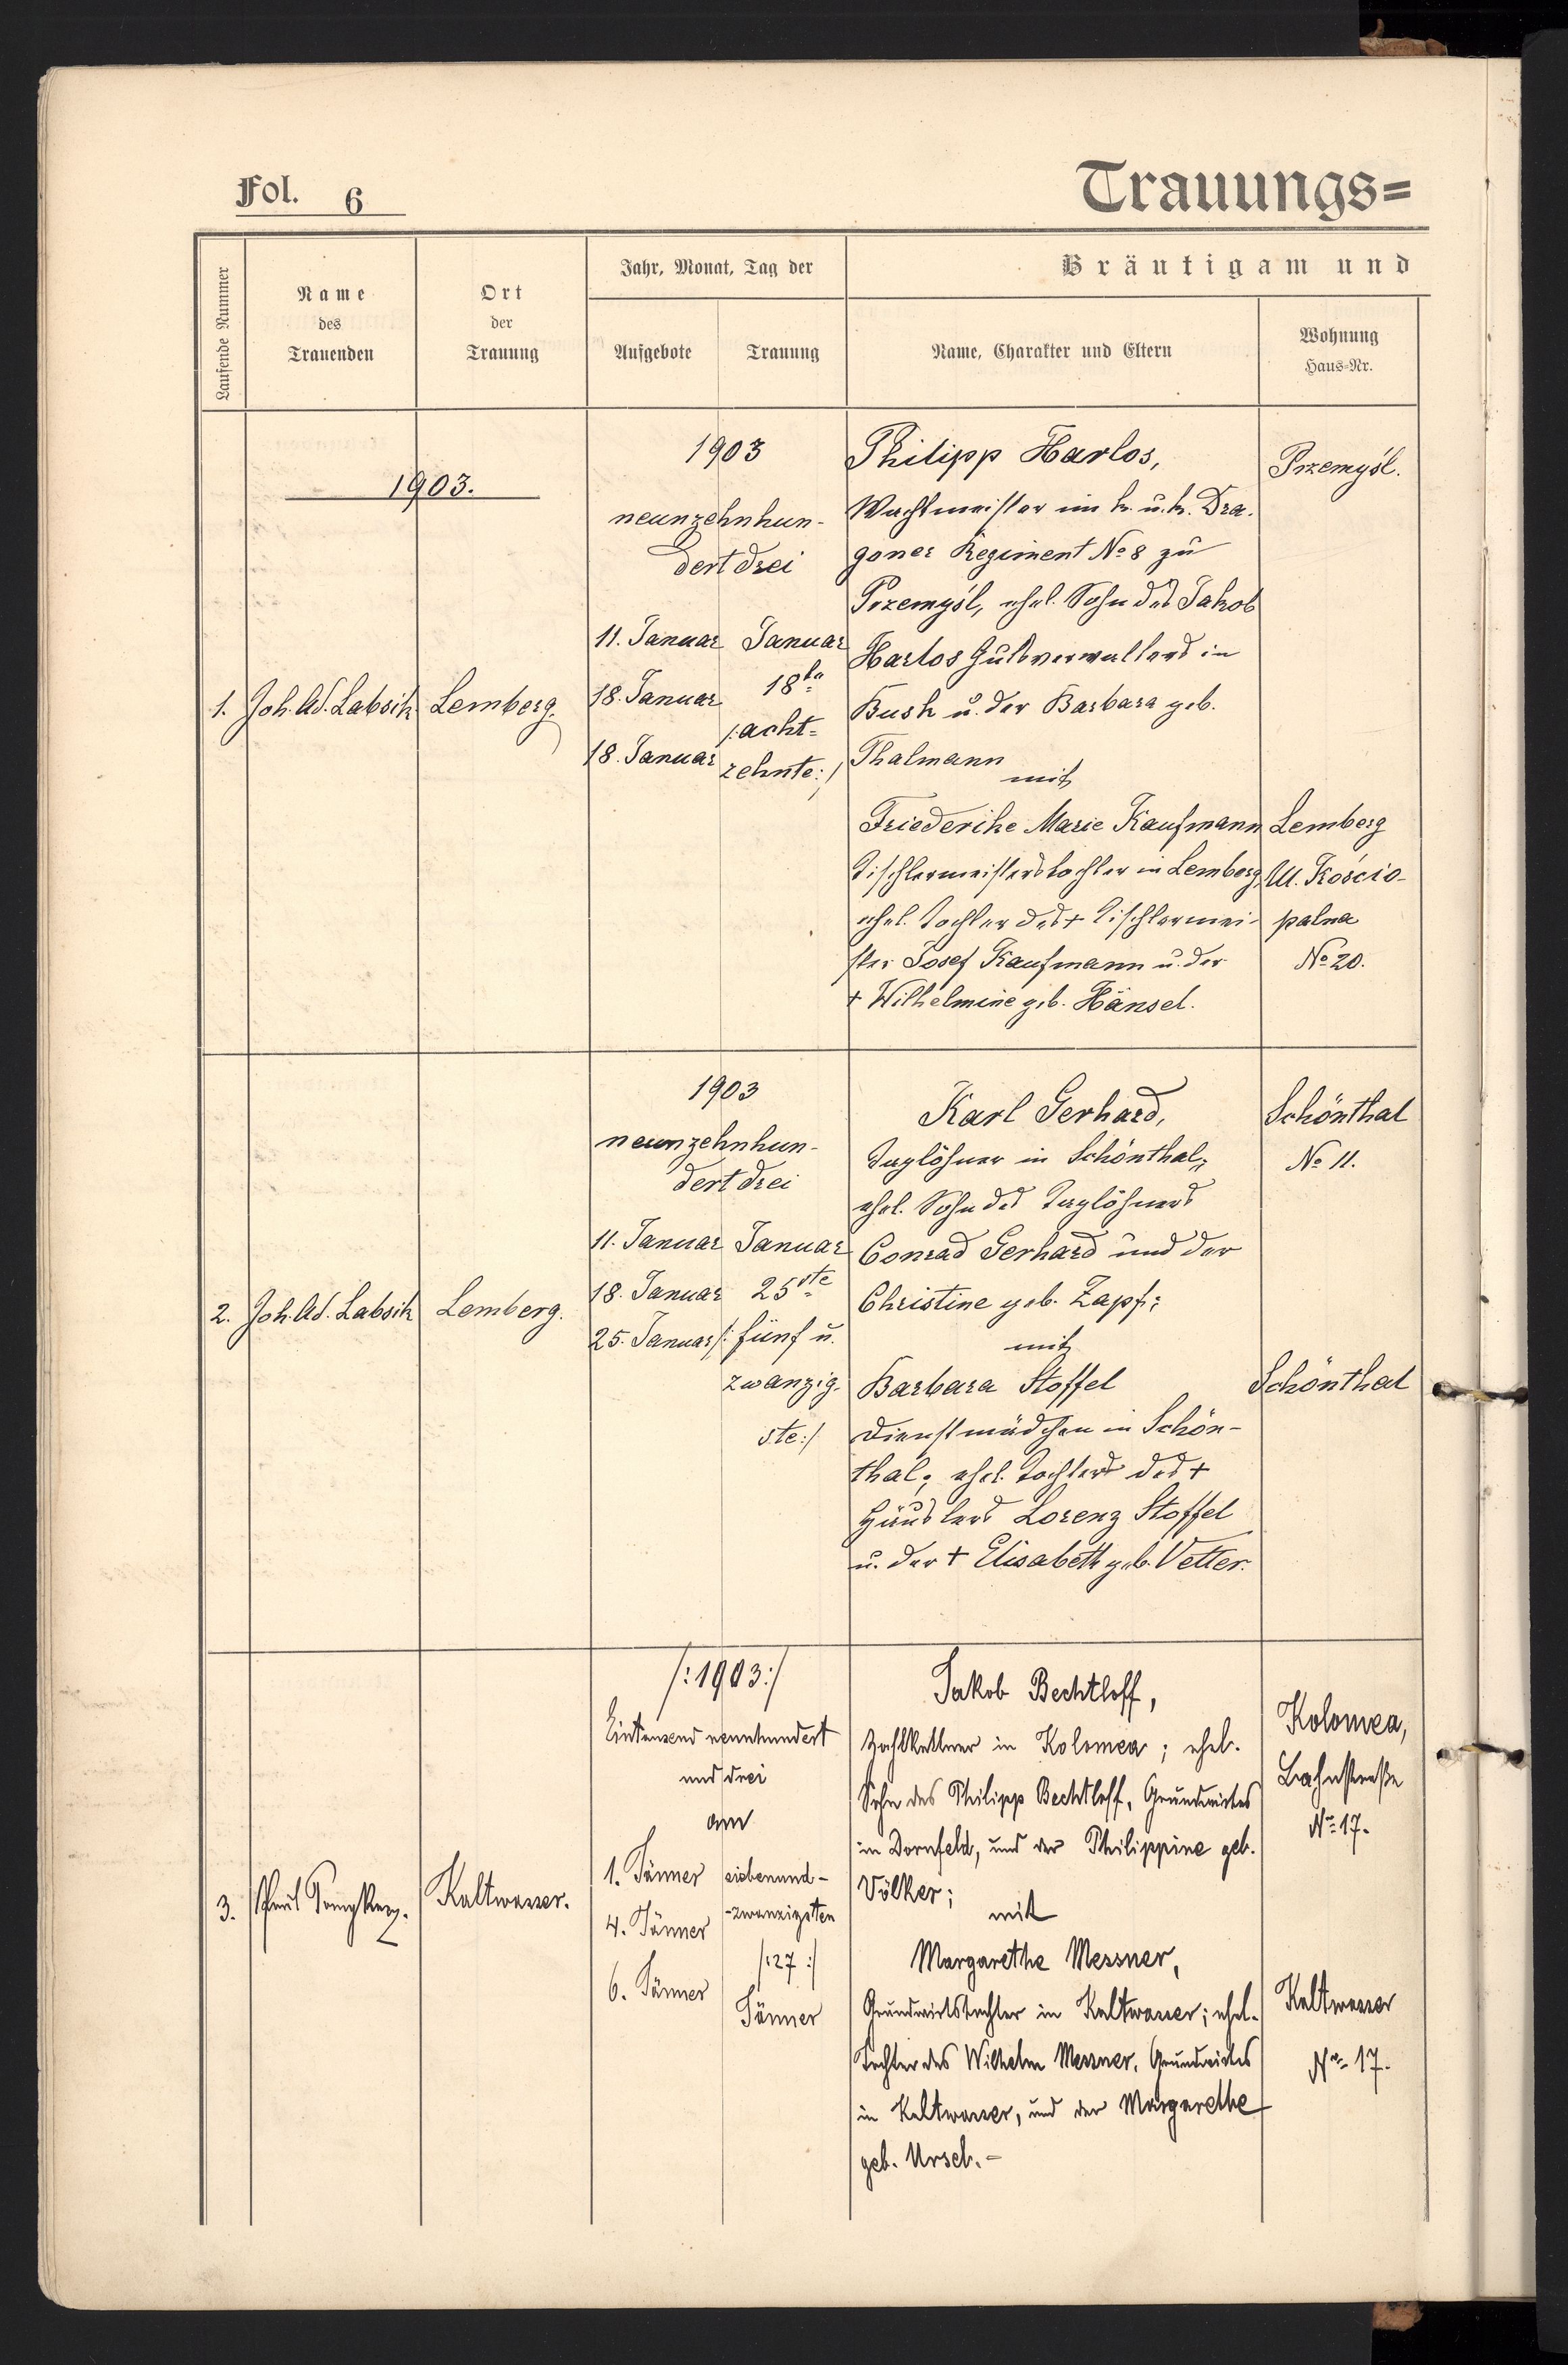 Fol. 6
Trauungs=
Laufende Nummer
Name
des
Trauenden
Ort
der
Trauung
Jahr, Monat, Tag der
Aufgebote
Trauung
Bräutigam und
Name, Charakter und Eltern
Wohnung
Haus=Nr.
1903.
1.
Joh. Ad. Labsik
Lemberg.
1903
neunzehnhun-
dert drei
11. Januar
18. Januar
18. Januar
Januar
18te
/:acht=
zehnte:/
Philipp Harlos,
Wachtmeister im k. u. k. Dra-
goner Regiment No 8 zu
Przemyśl, ehel. Sohn des Jakob
Harlos Gutsverwalters in
Busk u. der Barbara geb.
Thalmann
mit
Friederike Marie Kaufmann
Tischlermeisterstochter in Lemberg,
ehel. Tochter des + Tischlermei-
ster Josef Kaufmann u. der
+ Wilhelmine geb. Hänsel.
Przemyśl.
Lemberg
Ul. Kościo-
palna
No 20.
2.
Joh. Ad. Labsik
Lemberg.
1903
neunzehnhun-
dert drei
11. Januar
18. Januar
25. Januar
Januar
25ste
/: fünf u.
zwanzig-
ste:/
Karl Gerhard,
Taglöhner in Schönthal,
ehel. Sohn des Taglöhners
Conrad Gerhard und der
Christine geb. Zapf;
mit
Barbara Stoffel
Dienstmädchen in Schön-
thal; ehel. Tochter des +
Häuslers Lorenz Stoffel
u. der + Elisabeth geb. Vetter.
Schönthal
No 11.
Schönthal
3.
Kaltwasser.
/:1903:/
Eintausend neunhundert
und drei
am
1. Jänner
4. Jänner
6. Jänner
siebenund-
-zwanzigsten
/:27:/
Jänner
Jakob Bechtloff,
Zahlkellner in Kolomea; ehel.
Sohn des Philipp Bechtloff, Grundwirtes
in Dornfeld, und der Philippine geb.
Völker;
mit
Margarethe Messner,
Grundwirtstochter in Kaltwasser; ehel.
Tochter des Wilhelm Messner, Grundwirtes
in Kaltwasser, und der Margarethe
geb. Ursel.-
Kolomea,
Bahnstraße
No 17.
Kaltwasser
No 17.